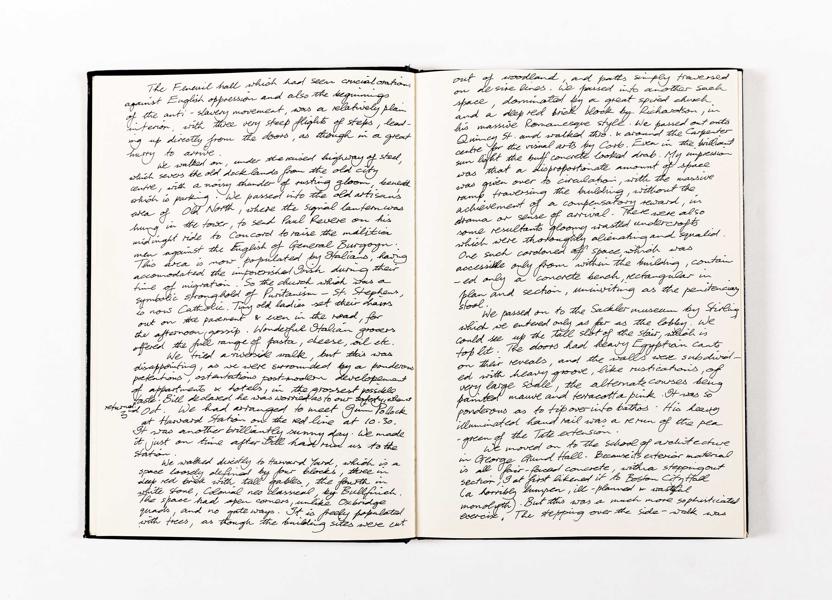 The Feneuil hall which had seen crucial orations
against English oppression and also the beginnings
of the anti-slavery movement, was a relatively plain
interior, with three very steep flights of steps, lead-
ing up directly from the doors, as though in a great
hurry to arrive.
We walked on, under the raised highway of steel,
which severs the old dock lands from the old city
centre, with a noisy thunder of rusting gloom, beneath
which is parking. We passed into the old artisans
area of Old North, where the signal lantern was
hung in the tower, to send Paul Revere on his
midnight ride to Concord to raise the militia
men against the English of General Burgoyn.
This area is now populated by Italians, having
accomodated the impoverished Irish during their
time of migration. So the church which was a
symbolic stronghold of Puritanism - St. Stephens,
is now Catholic. Tiny old ladies set their chairs
out on the pavment & even in the road, for
the afternoon gossip. Wonderful Italian grocers
offered the full range of pasta, cheese, oil etc.
We tried a riverside walk, but this was
disappointing, as we were surrounded by a ponderous
pretentious, ostentatious postmodern development
of appartments & hotels, in the grossest possible
taste. Bill declared he was worried as to our safety, alone
returned
3rd Oct. We had arranged to meet Jim Pollock
at Harvard Station on the red line at 10.30.
It was another brilliantly sunny day. We made
it just on time after Bill had run us to the
station.
We walked directly to Harvard Yard, which is a
space loosely defined by four blocks, three in
deep red brick with tall gables, the fourth in
white stone, Colonial neo classical, by Bullfinch.
The space had open corners, unlike Oxbridge
quads, and no gateways. It is freely populated
with trees, as though the building sites were cut
out of woodland, and paths simply traversed
on desire lines. We passed into another such
space, dominated by a great spired church,
and a deep red brick block by Richardson, in
his massive Romanesque style. We passed out onto
Quincy St. and walked thro. & around the Carpenter
centre for the visual arts by Corb. Even in the brilliant
sun light the buff concrete looked drab. My impression
was that a disproportionate amount of space
was given over to circulation, with the massive
ramp, traversing the building, without the
achievement of a compensatory reward, in
drama or sense of arrival. There were also
some resultant gloomy wasted undercrofts
which were thoroughly alienating and squalid.
One such cordoned off space which was
accessible only from within the building, contain
-ed only a concrete bench rectangular in
plan and section, uninviting as the penitencies
stool.
We passed on to the Sackler museum by Stirling
which we entered only as far as the lobby. We
could see up the tall slot of the stair, which is
top lit. The doors had heavy Egyptian cants
on their reveals, and the walls were subdivid-
ed with heavy groove, like rustications, of
very large scale, the alternate courses being
painted mauve and terracotta pink. It was so
ponderous as to tip over into bathos. His heavy
illuminated hand rail was a rerun of the pea
-green of the Tate extension.
We moved on to the school of architecture
in George Gund Hall. Because its exterior material
is all fair-faced concrete, with a stepping out
section, I at first likened it to Boston City Hall
(a horribly lumpen, ill-planned & wasteful
monolyth). But this was a much more sophisticated
exercise. The stepping over the side-walk was